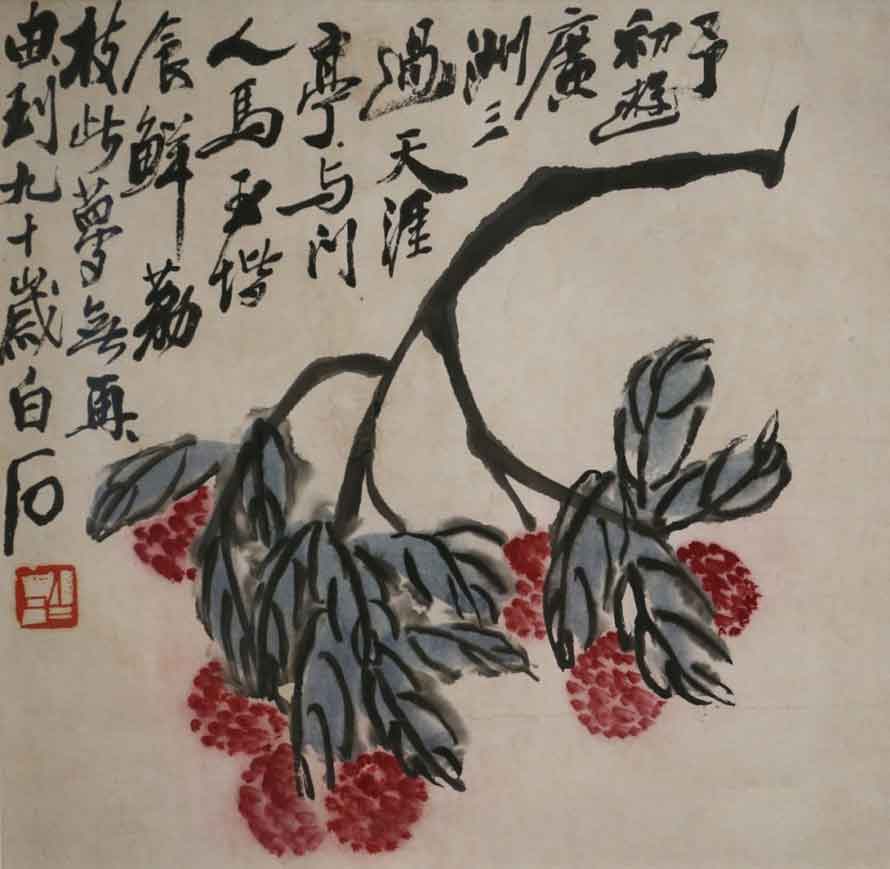 予
初遊
廣
洲三
過天涯
亭与门
人馬玉堦
食鮮荔
枝此夢無再
由到九十歲白石